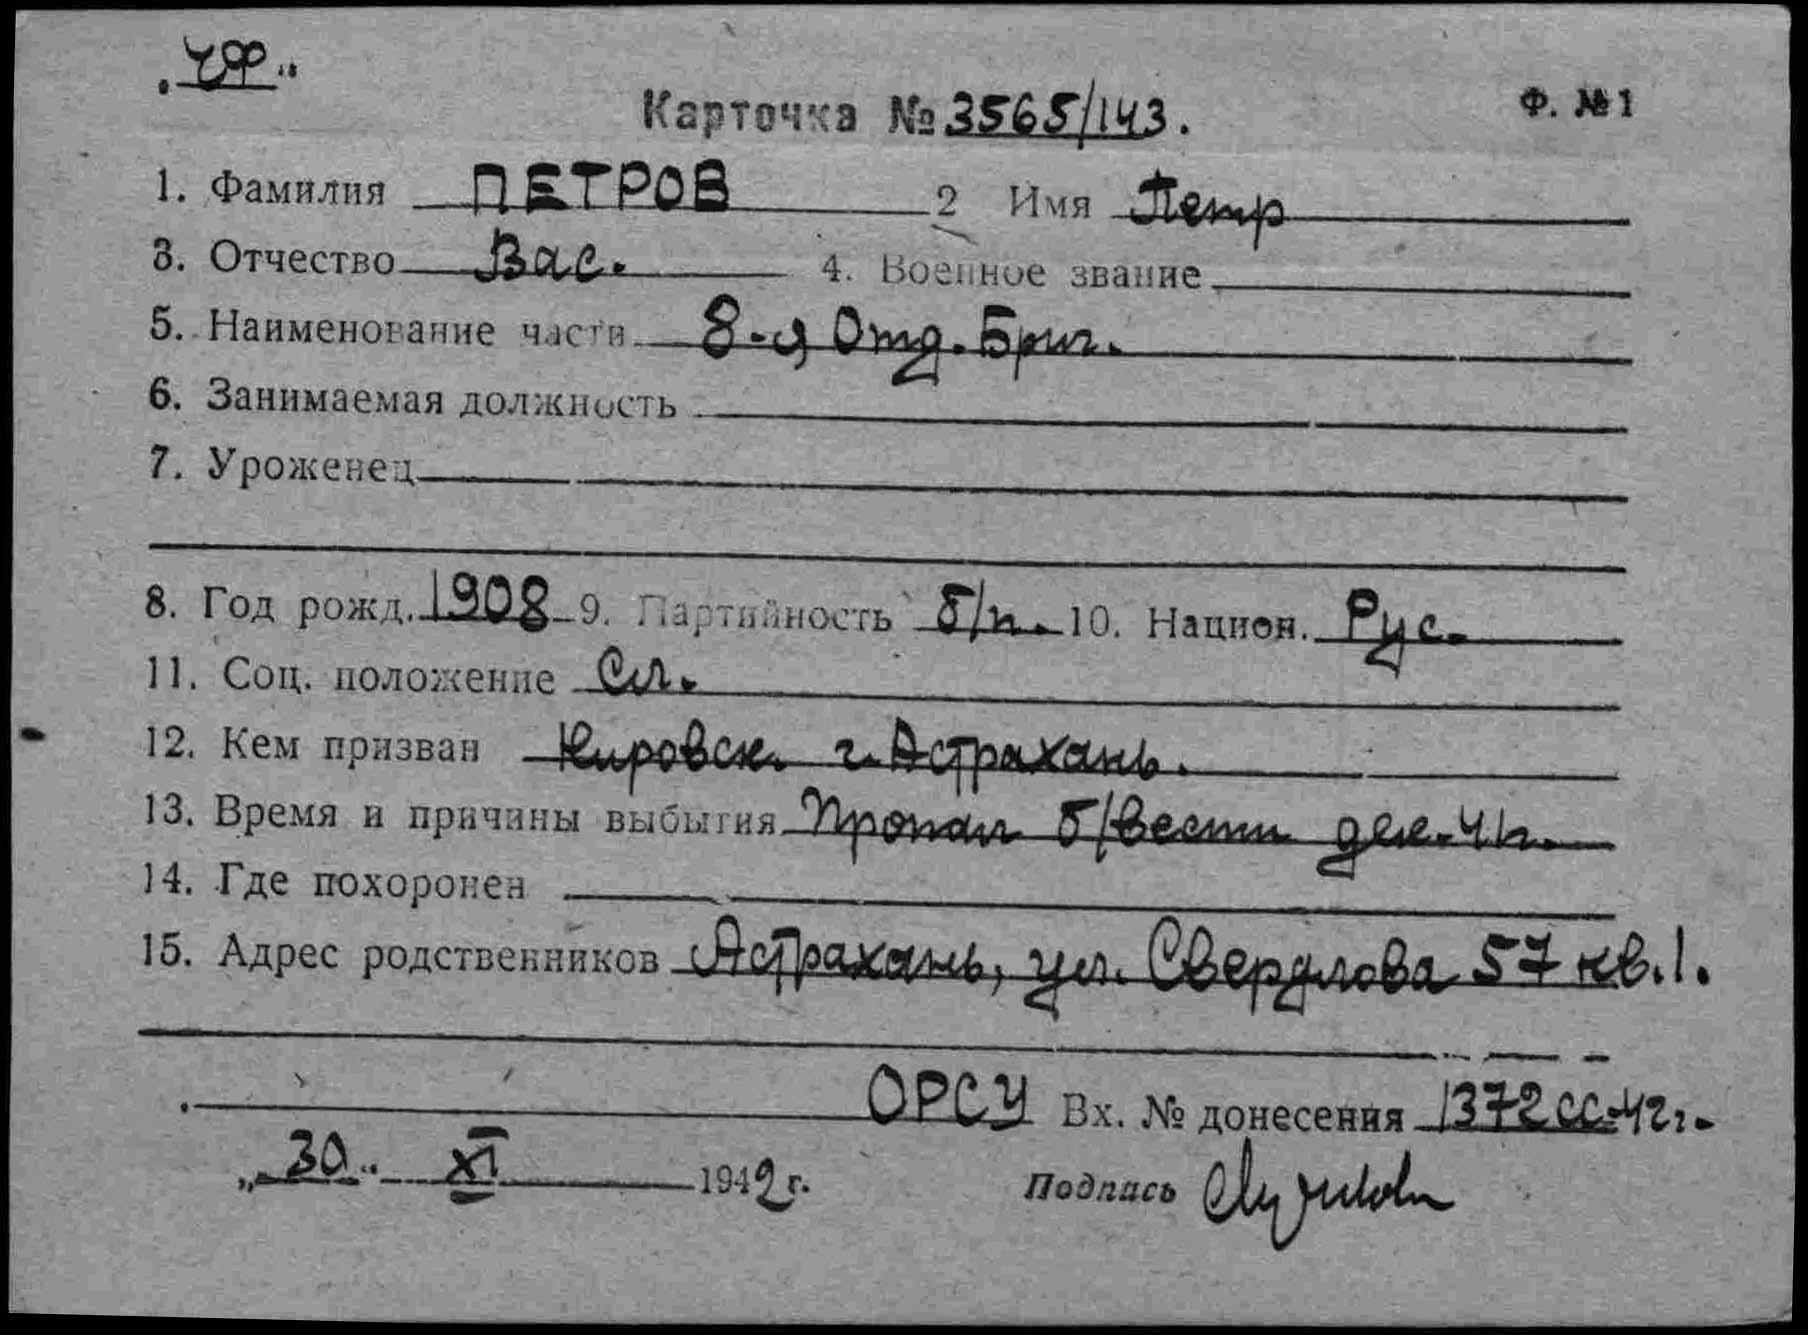 „ЧФ“
Карточка № 3565/143. Ф. №1
1. Фамилия ПЕТРОВ 2 Имя Петр
3. Отчество Вас. 4. Военное звание
5. Наименование части 8-я Отд. Бриг.
6. Занимаемая должность
7. Уроженец
8. Год рожд. 1908 9. Партийность б/п. 10. Национ. Рус.
11. Соц. положение Сл.
12. Кем призван Кировск. г. Астрахань.
13. Время и причины выбытия Пропал б/вести дек-41г.
14. Где похоронен
15. Адрес родственников Астрахань, ул. Свердлова 57 кв. 1.
ОРСУ Вх. № донесения 1372сс-42г.
„30“ XI 1942 г. Подпись